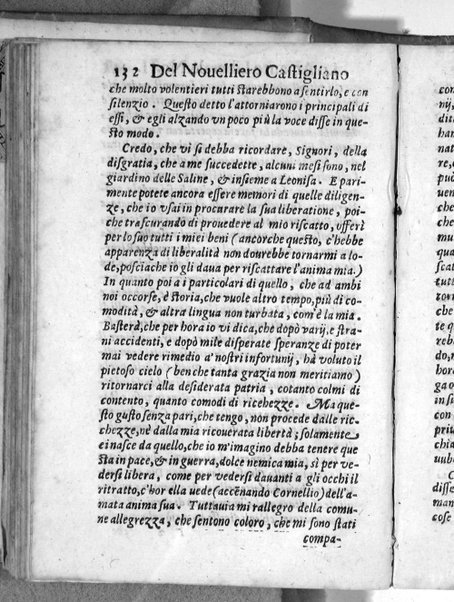 132 Del Nouelliero Castigliano
che molto volentieri tutti starebbono a sentirlo, e con
silenzio. Questo detto l'attorniarono i principali di
essi, & egli alzando vn poco più la voce disse in que-
sto modo.
Credo, che vi si debba ricordare, Signori, della
disgratia, che a me succedette, alcuni mesi sono, nel
giardino delle Saline, & insieme a Leonisa. E pari-
mente potete ancora essere memori di quelle diligen-
ze, che io vsai in procurare la sua liberatione, poi-
che trascurando di prouedere al mio riscatto, offerì
per lo suo tutti i miei beni (ancorche questo, c'hebbe
apparenza di liberalità non dourebbe tornarmi a lo-
de, posciache io gli daua per riscattare l'anima mia.)
In quanto poi a i particolari di quello, che ad ambi
noi occorse, è storia, che vuole altro tempo, più di co-
modità, & altra lingua non turbata, com'è la mia.
Basterà, che per hora io vi dica, che dopò varij, e stra-
ni accidenti, e dopò mile disperate speranze di poter
mai vedere rimedio a' nostri infortunij, hà voluto il
pietoso cielo (benche tanta grazia non meritiamo)
ritornarci alla desiderata patria, cotanto colmi di
contento, quanto comodi di ricchezze. Ma que-
sto gusto senza pari, che tengo, non procede dalle ric-
chezze, nè dalla mia ricouerata libertà; solamente
ei nasce da quello, che io m'imagino debba tenere que
sta in pace, & in guerra, dolce nemica mia, sì per ve-
dersi libera, come per vedersi dauanti a gli occhi il
ritratto, c'hor ella uede (accēnando Cornellio) dell'a-
mata anima sua. Tuttauia mi rallegro della comu-
ne allegrezza, che sentono coloro, che mi sono stati
compa-